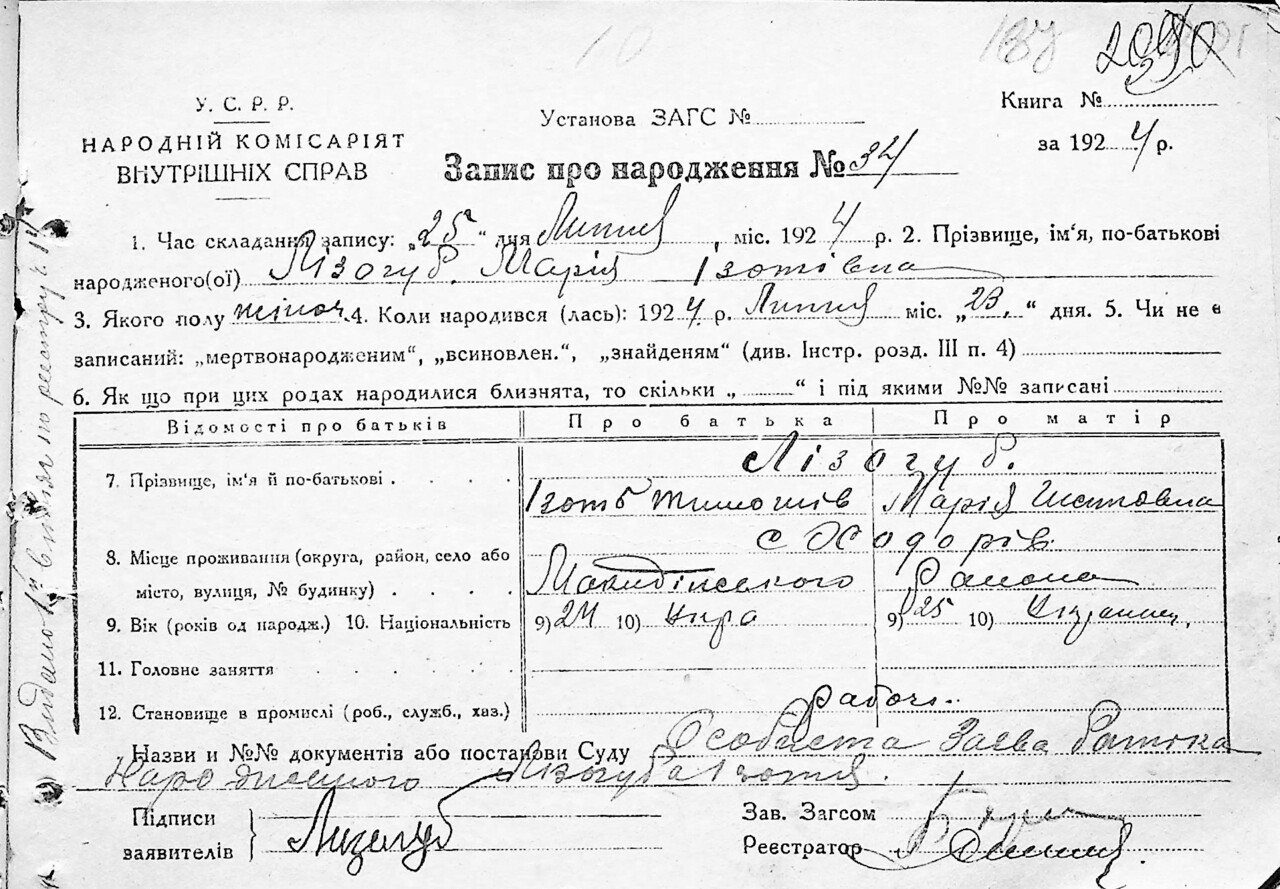 10
У. С. Р. Р.
НАРОДНІЙ КОМІСАРІЯТ
ВНУТРІШНІХ СПРАВ
Установа ЗАГС №
Книга №
за 1924 р.
Запис про народження № 34
1. Час складання запису: „25“ дня Липня, міс. 1924 р. 2. Прізвище, ім'я, по-батькові
народженого(ої) Лізогуб. Марія Ізотівна
3. Якого полу жіноч. 4. Коли народився (лась): 1924 р. Липня міс. „23.“ дня. 5. Чи не є
записаний: „мертвонародженим“, „всиновлен.“, „знайденям“ (див. Інстр. розд. III п. 4)
6. Як що при цих родах народилися близнята, то скільки „ “ і під якими №№ записані
Відомості про батьків Про батька Про матір
Лізогуб.
7. Прізвище, ім'я й по-батькові . . . .
Ізотъ Тимошів Марія
с Ходорів
8. Місце проживання (округа, район, село або
місто, вулиця, № будинку) . . . . Района
9. Вік (років од народж.) 10. Національність 9) 24 10) Укра 9) 25 10)
11. Головне заняття . . . . .
Рабочі.
12. Становище в промислі (роб., служб., хаз.)
Назви и №№ документів або постанови Суду Особиста Заєва Батька
Народженного Лізогуба Ізотія.
Підписи
заявителів Лизогуб
Зав. Загсом
Реєстратор
Видано в по реєстру